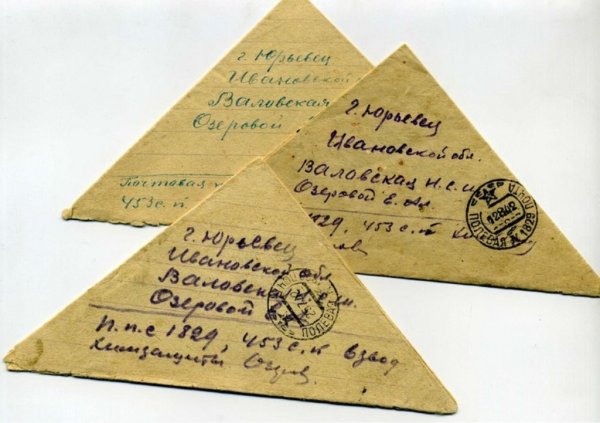 г. Юрьевец
Ивановской
Валовская
Озеровой
Почтовая
453 с. п
г. Юрьевец
Ивановской обл.
Валовская Н. С. Ш.
Озеровой Е.
1829, 453 с. п
ПОЛЕВАЯ ПОЧТА
1829
г. Юрьевец
Ивановской обл
Валовская
Озеровой
П. п. с 1829, 453 с. п Взвод
химзащиты
ПОЛЕВАЯ